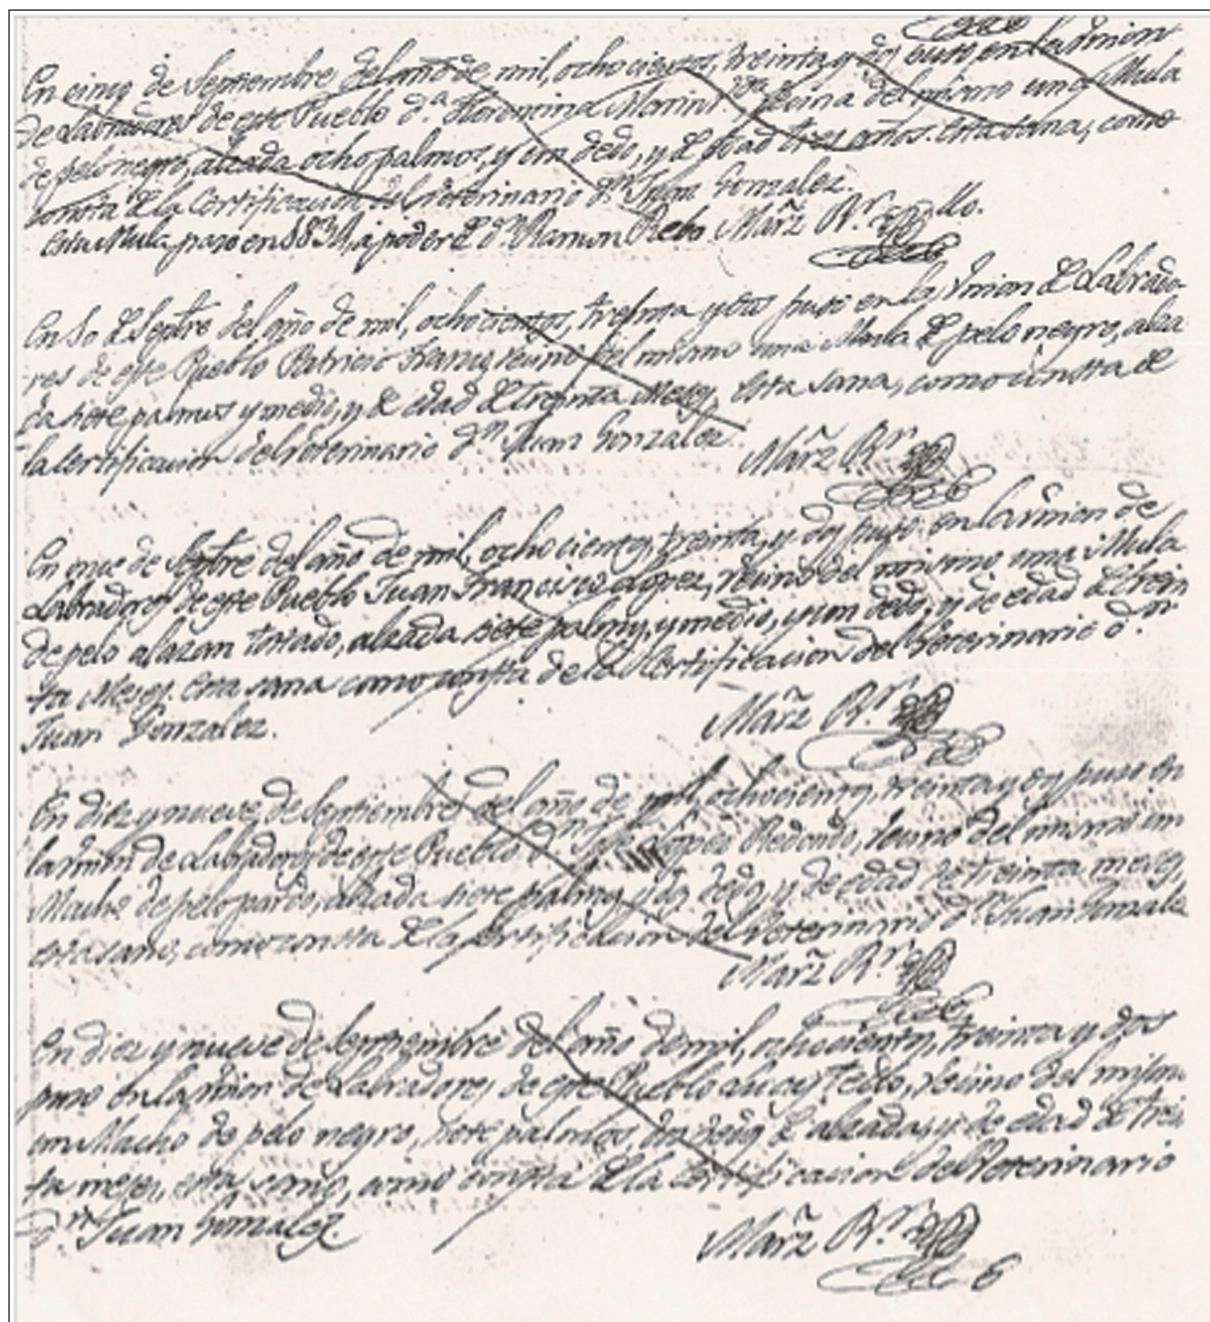 En cinco de Septiembre del año de mil, ochocientos, treinta y dos puso en la union
de Labradores de este Pueblo d.ª Geronima vecina del mismo una Mula
de pelo negro, alzada ocho palmos, y un dedo, y de edad tres años. esta sana, como
consta de la Certificacion del Veterinario d.n Juan Gonzalez.
Esta Mula paso en 1834, a poder de d.n Ramon Mārz Rr.
En de Septre del año de mil, ochocientos, treinta y dos puso en la Union de Labrado
res de este Pueblo Patricio vecino del mismo una Mula de pelo negro, alza
da siete palmos y medio, y de edad de treinta Meses, esta sana, como consta de
la certificacion del Veterinario d.n Juan Gonzalez.
Mārz Rr.
En once de Septre del año de mil, ochocientos, treinta, y dos puso en la union de
Labradores de este Pueblo Juan Francisco Lopez, vecino del mismo una Mula
de pelo alazan tostado, alzada siete palmos, y medio, y un dedo, y de edad de trein
ta Meses. esta sana como consta de la Certificacion del Veterinario d.n
Juan Gonzalez.
Mārz Rr.
En diez y nueve de Septiembre del año de mil, ochocientos, treinta y dos puso en
la union de Labradores de este Pueblo D.n Lopez Redondo, vecino del mismo un
Macho de pelo pardo, alzada siete palmos, y dos dedos, y de edad de treinta meses,
esta sano, como consta de la certificacion del Veterinario d.n Juan Gonzalez
Mārz Rr.
En diez y nueve de Septiembre del año de mil, ochocientos, treinta y dos
puso en la union de Labradores de este Pueblo Lucas Tello, vecino del mismo
un Macho de pelo negro, siete palmos, dos dedos de alzada, y de edad de trein
ta meses, esta sano, como consta de la certificacion del Veterinario
D.n Juan Gonzalez.
Mārz Rr.